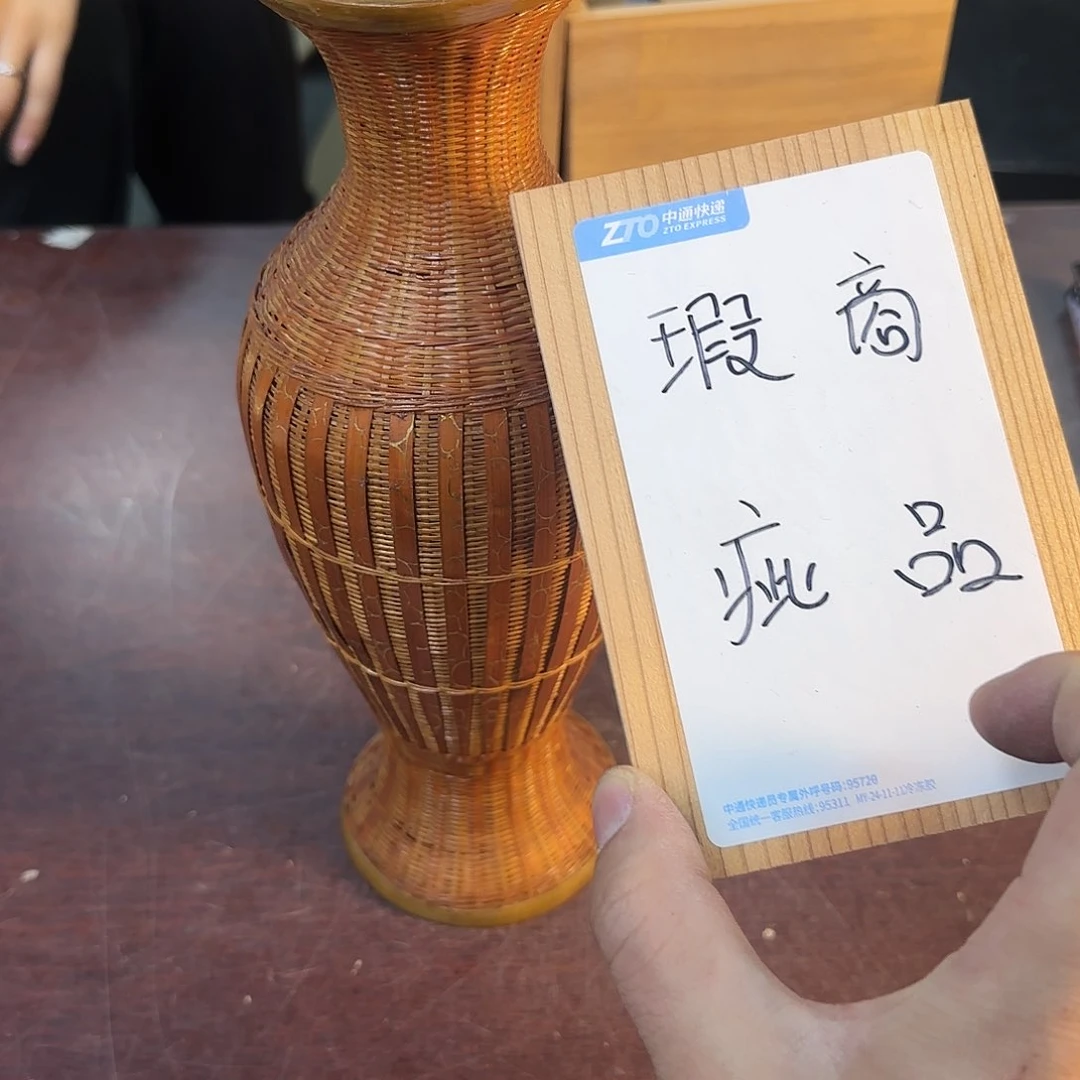 ZTO 中通快递
ZTO EXPRESS
瑕 商
疵 品
中通快递员专属外呼号码:95720
全国统一客服热线:95311 MY-24-11-11冷冻胶